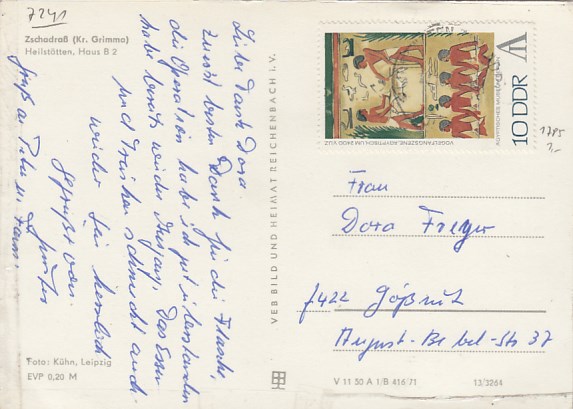 7241
Zschadraß (Kr. Grimma)
Heilstätten, Haus B 2
Liebe Tante Dora.
Zuerst besten Dank für die Flasche,
die Operation habe ich gut überstanden
habe bereits wieder Ausgang. Das Essen
und Trinken schmeckt auch
wieder. Sei herzlich
gegrüßt von
Günter
Gruß an Peter u. Fam.
Foto: Kühn, Leipzig
EVP 0,20 M
VEB BILD UND HEIMAT REICHENBACH i. V.
10 DDR
VOGELFANGSZENE, ÄGYPTISCH UM 2400 V.U.Z.
1785
Frau
Dora Freyer
7422 Gößnitz
August-Bebel-Str 37
V 11 50 A 1/B 416/71
13/3264